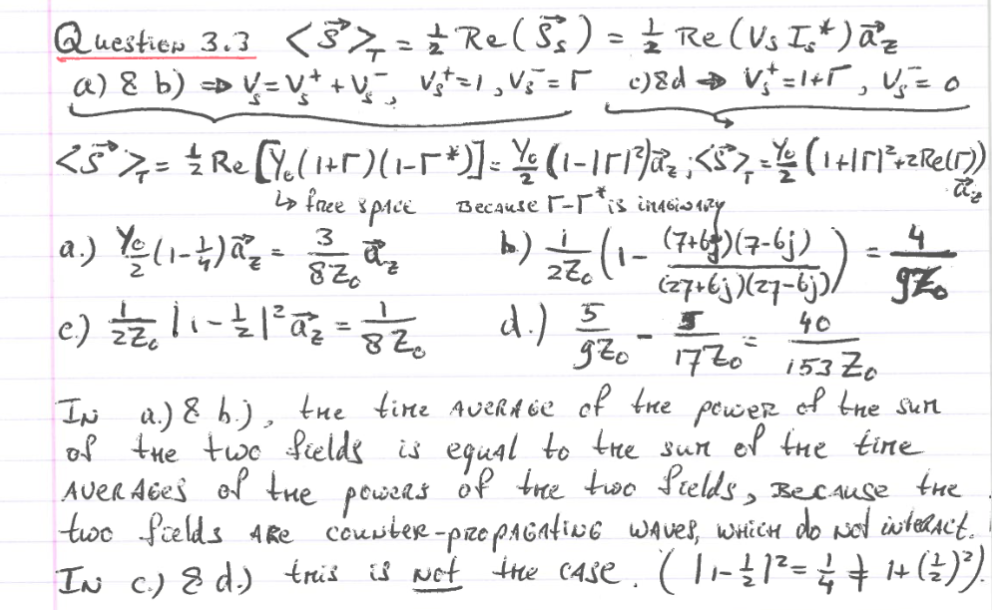 Question 3.3 <S⃗>_T = 1/2 Re(S⃗_s) = 1/2 Re(V_s I_s*) a⃗_z
a) & b) ⇒ V_s = V_s⁺ + V_s⁻, V_s⁺ = 1, V_s⁻ = Γ c) & d ⇒ V_s⁺ = 1+Γ, V_s⁻ = 0
<S⃗>_T = 1/2 Re[Y_0(1+Γ)(1-Γ*)] = Y_0/2 (1-|Γ|²) a⃗_z; <S⃗>_T = Y_0/2 (1+|Γ|²+2Re(Γ)) a⃗_z
↳ free space BECAUSE Γ-Γ* is imaginary
a.) Y_0/2 (1-1/4) a⃗_z = 3/(8Z_0) a⃗_z b.) 1/(2Z_0) (1 - (7+6j)(7-6j)/((27+6j)(27-6j))) = 4/(9Z_0)
c.) 1/(2Z_0) |1-1/2|² a⃗_z = 1/(8Z_0) d.) 5/(9Z_0) - 5/(17Z_0) = 40/(153Z_0)
IN a.) & b.), the time AVERAGE of the power of the sum
of the two fields is equal to the sum of the time
AVERAGES of the powers of the two fields, BECAUSE the
two fields ARE counter-propAGAtiNG WAVES, WHICH do Not interAct.
IN c.) & d.) this is Not the CASE. (|1-1/2|² = 1/4 ≠ 1+(1/2)²).